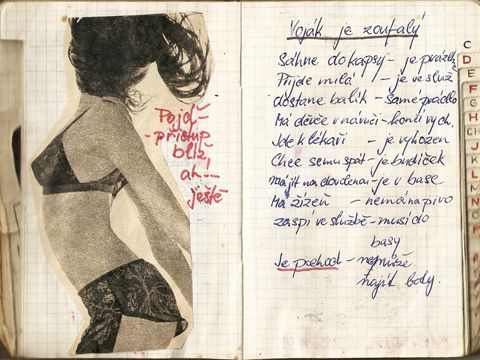 Pojď -
- přistup
blíž,
ah....
ještě
Voják je zoufalý
Sáhne do kapsy - je prázdná
Přijde milá - je ve služ
dostane balík - samé prádlo
Má děvče v náručí - končí vych.
Jde k lékaři - je vyhozen
Chce se mu spát - je budíček
má jít na dovolenou - je v base
Má žízeň - nemá na pivo
zaspí ve službě - musí do
basy
Je pochod - nemůže
najít boty.
C
D
E
F
G
H
CH
J
K
L
M
N
O
P
R